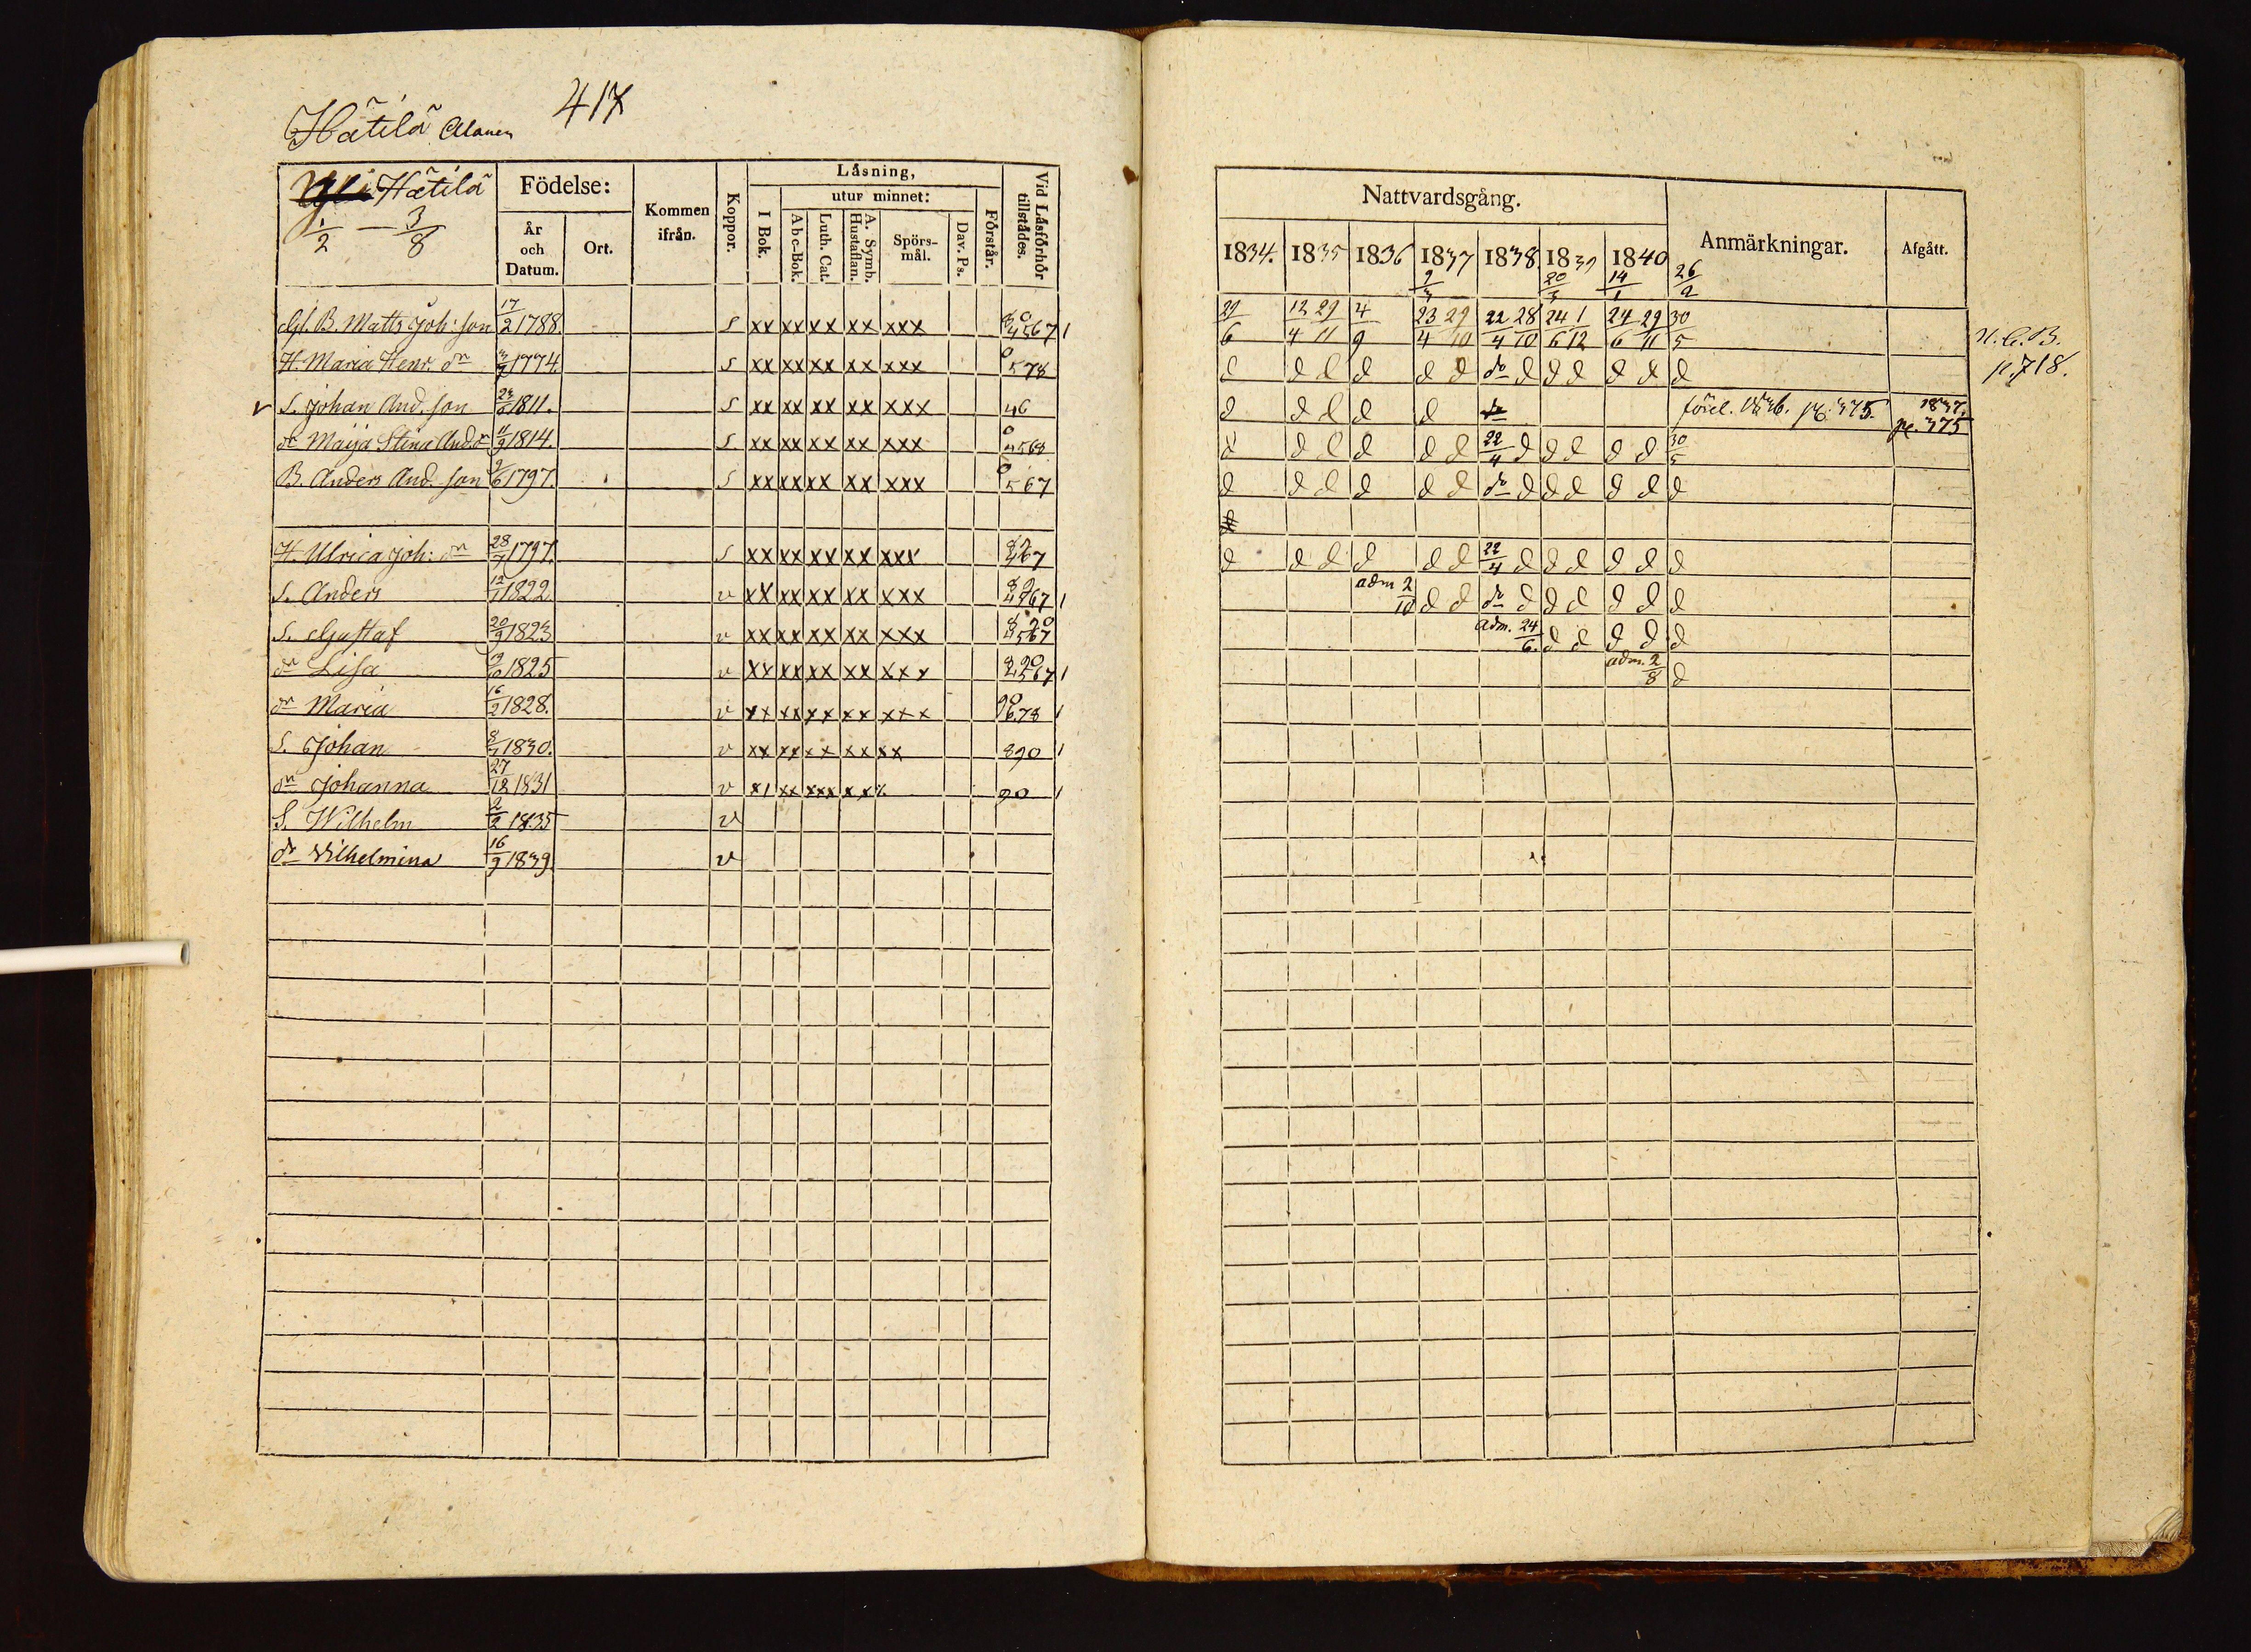 417
Hätilä Alanen
Hätilä
1/2 — 3/8
Födelse:
År och Datum.
Ort.
Kommen ifrån.
Koppor.
Låsning,
I Bok.
utur minnet:
Abc-Bok.
Luth. Cat.
A. Symb. Hustaflan.
Spörsmål.
Dav. Ps.
Förstår.
Vid Låsförhör tillstådes.
B. Matts Joh: son 17/2 1788. s xx xx xx xx xxx 4567 1
H. Maria Henr. dr 1774. s xx xx xx xx xxx 0 578
v S. Johan And. son 1811. s xx xx xx xx xxx 46
dr Maija Stina And dr 11/9 1814. s. xx xx xx xx xxx 0
B. Anders And. son 1797. s xx xx xx xx xxx 0 567
H. Ulrica Joh: dr 28/7 1797. s xx xx xx xx xxx
S. Anders 1822. v xx xx xx xx xxx 1
S. Gustaf 20/9 1823 v xx xx xx xx xxx 4567
dr Lisa 1825 v xx xx xx xx xxx 4567 1
dr Maria 16/2 1828. v xx xx xx xx xxx 90 678 1
S. Johan 1830. v xx xx xx xx xx 890 1
dr Johanna 27/12 1831 v x/ xx xxx x x% 90 1
S. Wilhelm 2/2 1835 v
dr Vilhelmina 16/9 1839. v
Nattvardsgång.
Anmärkningar.
Afgått.
1834. 1835 1836 1837 1838 1839 1840
9/3 20/3 14/1 26/2
29/6 12/4 29/11 4/9 23/4 29/10 22/4 28/10 24/6 1/12 24/6 29/11 30/5
N. C. B.
p. 718.
d d d d d d do d d d d d d
d d d d d pg. 375. 1837. pg. 375
d d d d d d 22/4 d d d d d 30/5
d d d d d d do d d d d d d
d d d d d d 22/4 d d d d d d
adm 2/10 d d do d d d d d d
adm. 24/6. d d d d d
adm. 2/8 d